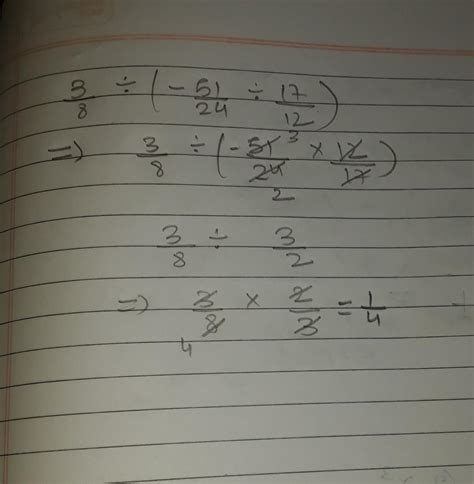 3/8 ÷ (- 51/24 ÷ 17/12)
=) 3/8 ÷ (- 51/24 3/2 × 12/17)
3/8 ÷ 3/2
=) 3/8 4 × 2/3 = 1/4